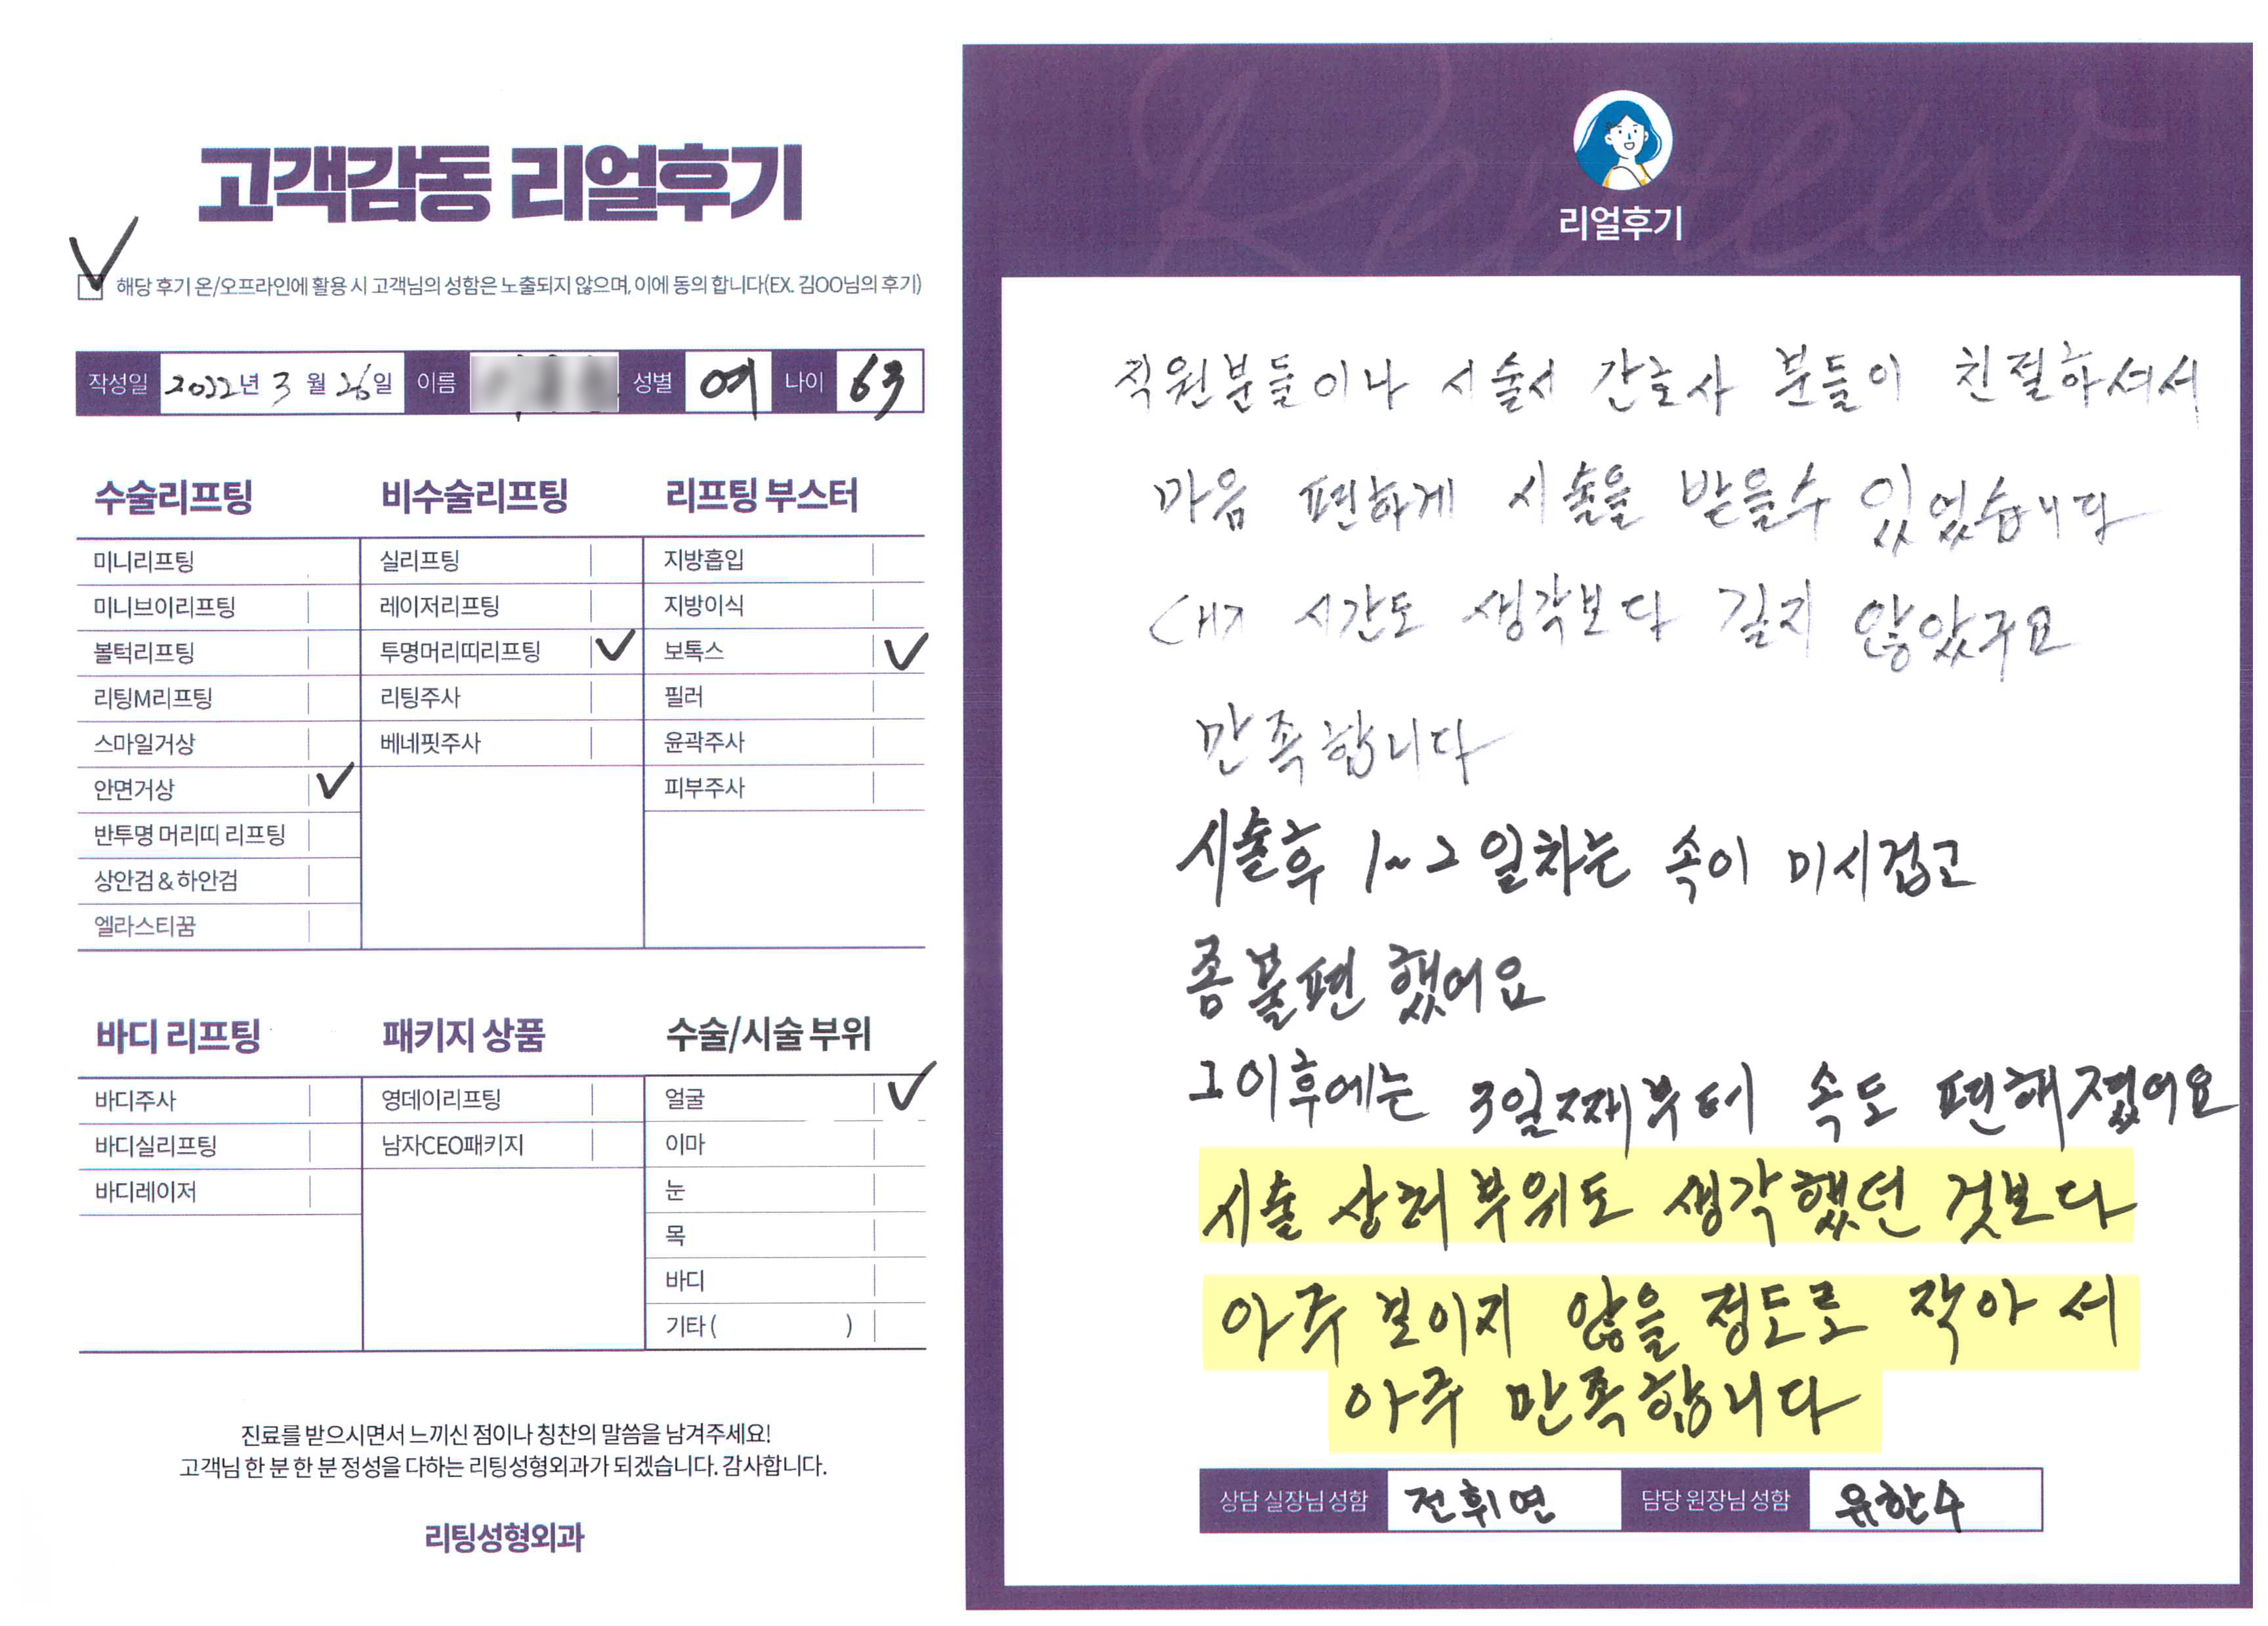 고객감동 리얼후기
해당 후기 온/오프라인에 활용 시 고객님의 성함은 노출되지 않으며, 이에 동의 합니다(EX. 김OO님의 후기)
작성일 2022년 3월 26일 이름 성별 여 나이 63
수술리프팅
미니리프팅
미니브이리프팅
볼턱리프팅
리팅M리프팅
스마일거상
안면거상
반투명 머리띠 리프팅
상안검&하안검
엘라스티꿈
비수술리프팅
실리프팅
레이저리프팅
투명머리띠리프팅
리팅주사
베네핏주사
리프팅 부스터
지방흡입
지방이식
보톡스
필러
윤곽주사
피부주사
바디 리프팅
바디주사
바디실리프팅
바디레이저
패키지 상품
영데이리프팅
남자CEO패키지
수술/시술 부위
얼굴
이마
눈
목
바디
기타 ( )
진료를 받으시면서 느끼신 점이나 칭찬의 말씀을 남겨주세요!
고객님 한 분 한 분 정성을 다하는 리팅성형외과가 되겠습니다. 감사합니다.
리팅성형외과
Review
리얼후기
직원분들이나 시술서 간호사 분들이 친절하셔서
마음 편하게 시술을 받을수 있었습니다
시간도 생각보다 길지 않았구요
만족합니다
시술후 1~2일차는 속이 미시겁고
좀 불편 했어요
그이후에는 3일째부터 속도 편해졌어요
시술 상처 부위도 생각했던 것보다
아주 보이지 않을 정도로 작아서
아주 만족합니다
상담 실장님 성함 전휘연 담당 원장님 성함 유한수